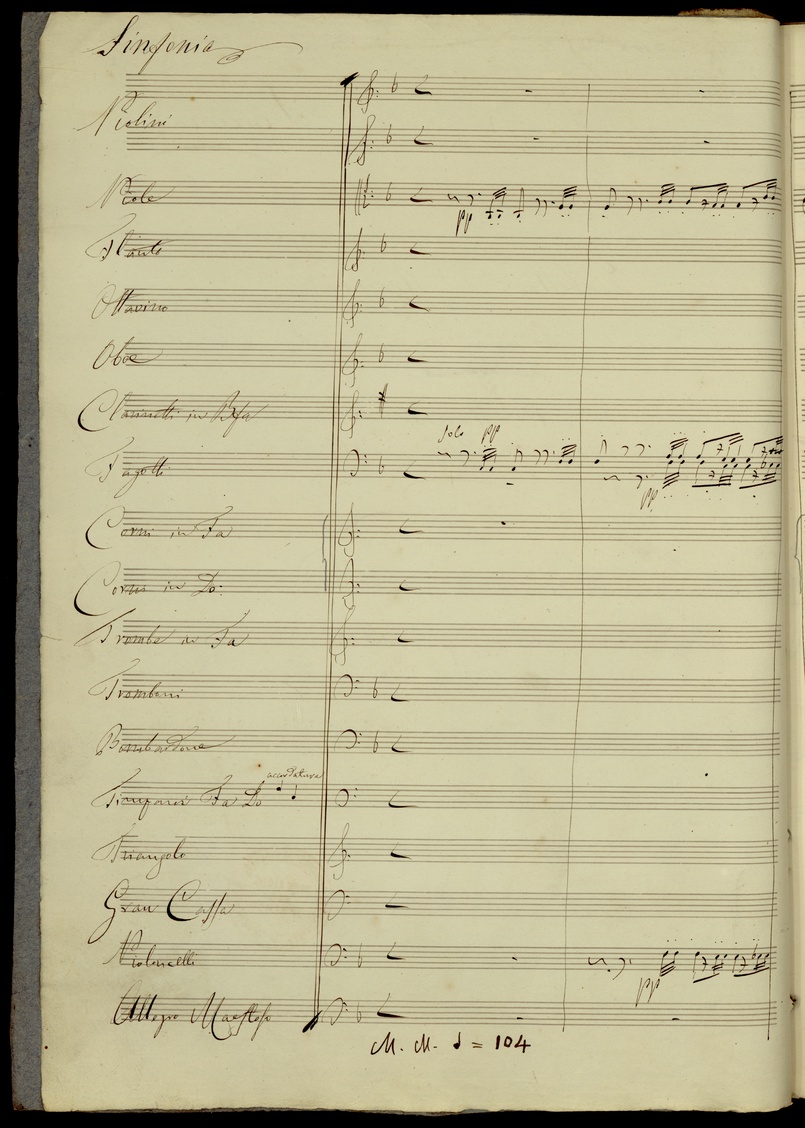 Sinfonia
Violini
Viole
pp
Flauto
Ottavino
Oboe
Clarinetti in Bfa
Solo pp
Fagotti
pp
Corni in Fa
Corni in Do
Trombe in Fa
Tromboni
Bombardone
accordatura
Timpani Fa Do
Triangolo
Gran Cassa
Violoncelli
pp
Allegro Maestoso
M. M. 𝅗𝅥 = 104